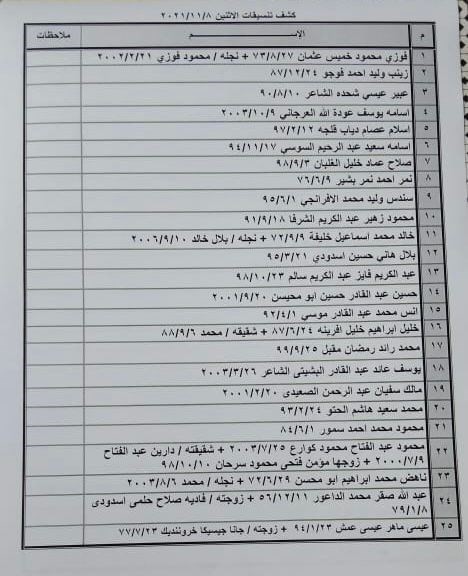 كشف تنسيقات الاثنين ٢٠٢١/١١/٨
م الاســـــــم ملاحظات
١ فوزي محمود خميس عثمان ٧٣/٨/٢٧ + نجله / محمود فوزي ٢٠٠٢/٢/٢١
٢ زينب وليد احمد فوجو ٨٧/١٢/٢٤
٣ عبير عيسي شحده الشاعر ٩٠/٨/١٠
٤ اسامه يوسف عودة الله العرجاني ٢٠٠٣/١٠/٩
٥ اسلام عصام دياب قلجه ٩٧/٢/١٢
٦ اسامه سعيد عبد الرحيم السوسي ٩٤/١١/١٧
٧ صلاح عماد خليل الغلبان ٩٨/٩/٣
٨ نمر احمد نمر بشير ٧٦/٦/٩
٩ سندس وليد محمد الافرانجي ٩٥/٦/١
١٠ محمود زهير عبد الكريم الشرفا ٩١/٩/١٨
١١ خالد محمد اسماعيل خليفة ٧٢/٩/٩ + نجله / بلال خالد ٢٠٠٦/٩/١٠
١٢ بلال هاني حسين اسدودي ٩٥/٣/٢١
١٣ عبد الكريم فايز عبد الكريم سالم ٩٨/١٠/٢٣
١٤ حسين عبد القادر حسين ابو محيسن ٢٠٠١/٩/٢٠
١٥ انس محمد عبد القادر موسي ٩٢/٤/١
١٦ خليل ابراهيم خليل افرينه ٨٧/٦/٢٤ + شقيقه / محمد ٨٨/٩/٦
١٧ محمد رائد رمضان مقبل ٩٩/٩/٢٥
١٨ يوسف عائد عبد القادر البشيتى الشاعر ٢٠٠٣/٣/٢٦
١٩ مالك سفيان عبد الرحمن الصعيدى ٢٠٠١/٢/٢٠
٢٠ محمد سعيد هاشم الحتو ٩٣/٢/٢٤
٢١ محمود محمد احمد سمور ٨٤/٦/١
٢٢ محمود عبد الفتاح محمود كوارع ٢٠٠٣/٧/٢٥ + شقيقته / دارين عبد الفتاح
٢٠٠٠/٧/٩ + زوجها مؤمن فتحى محمود سرحان ٩٨/١٠/١٠
٢٣ ناهض محمد ابراهيم ابو محسن ٧٢/٦/٢٩ + نجله / محمد ٢٠٠٣/٨/٦
٢٤ عبد الله صقر محمد الداعور ٥٦/١٢/١١ + زوجته / فاديه صلاح حلمى اسدودى
٧٩/١/٨
٢٥ عيسى ماهر عيسى عمش ٩٤/١/٢٣ + زوجته / جانا جيسيكا خرونديك ٧٧/٧/٢٣